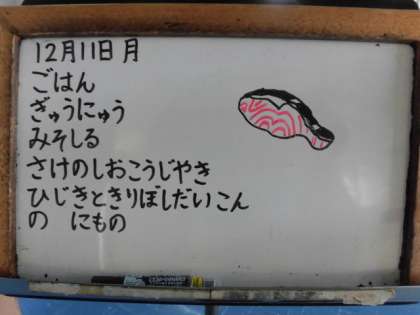 12月11日 月
ごはん
ぎゅうにゅう
みそしる
さけのしおこうじやき
ひじきときりぼしだいこん
の にもの